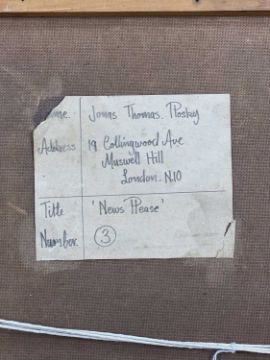 Name. Jonas Thomas. Plosky
Address 19 Collingwood Ave
Muswell Hill
London. N.10
Title 'News Please'
Number. 3